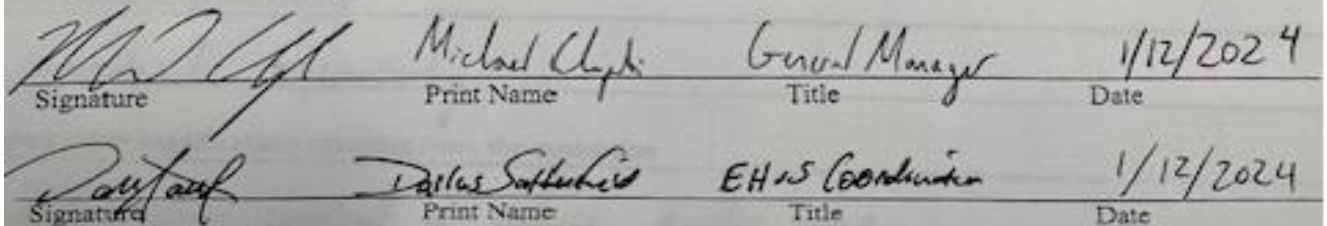 Michael General Manager 1/12/2024
Signature Print Name Title Date
Dallas Satterfield EH&S Coordinator 1/12/2024
Signature Print Name Title Date